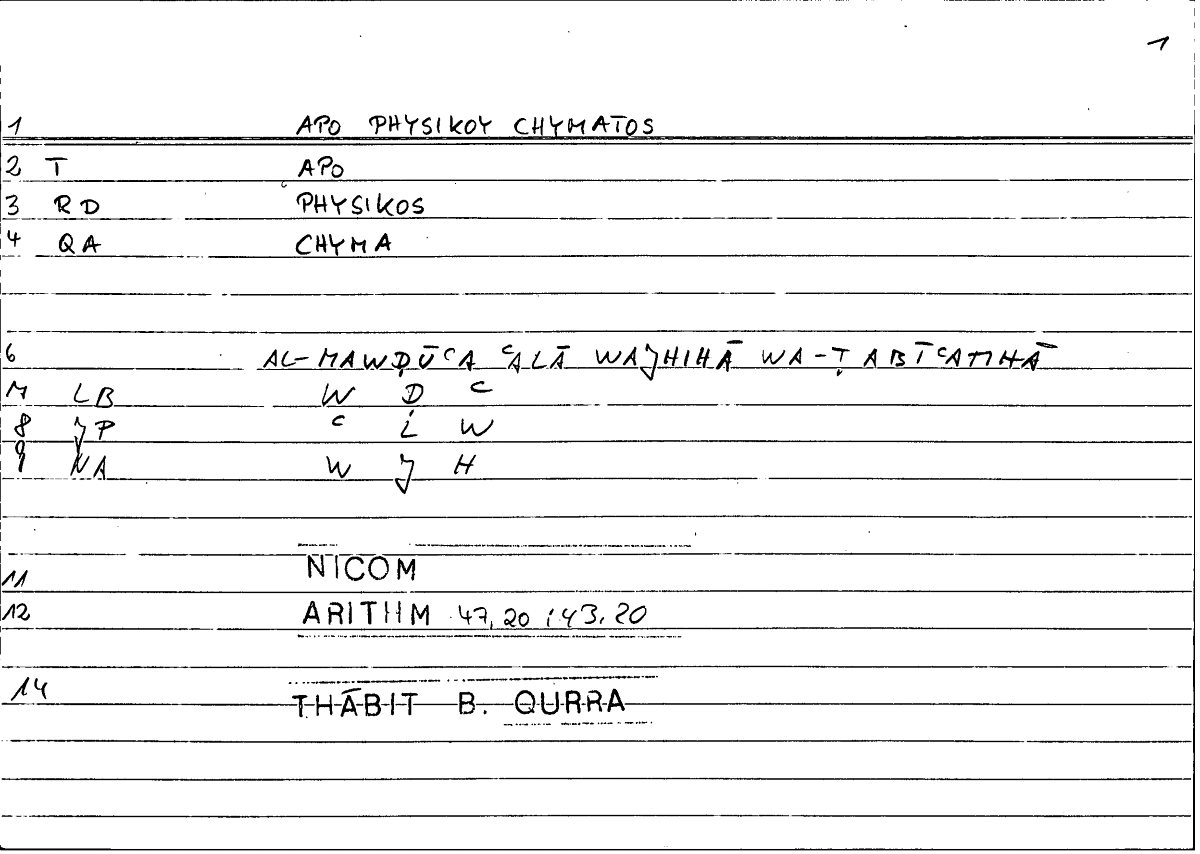 1
1 APO PHYSIKOY CHYMATOS
2 T APO
3 RD PHYSIKOS
4 QA CHYMA
6 AL-MAWḌŪʿA ʿALĀ WAJHIHĀ WA-ṬABĪʿATIHĀ
M LB W Ḍ ʿ
8 JP ʿ L W
9 NA W J H
11 NICOM
12 ARITHM 47,20 ; 43,20
14 THĀBIT B. QURRA